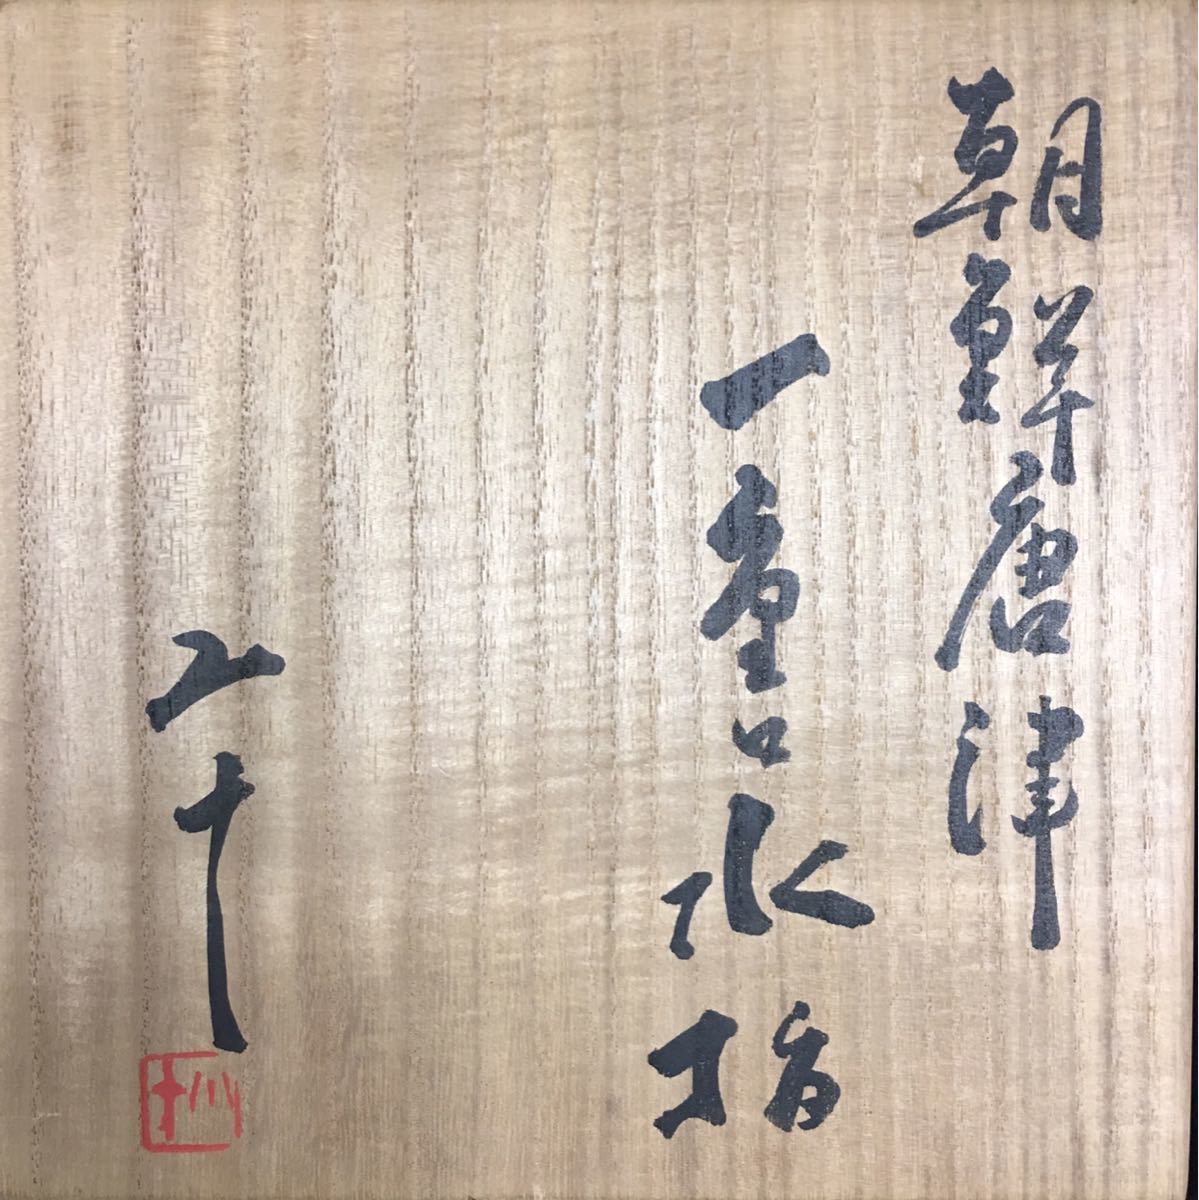 朝鮮唐津
一重口水指
小十